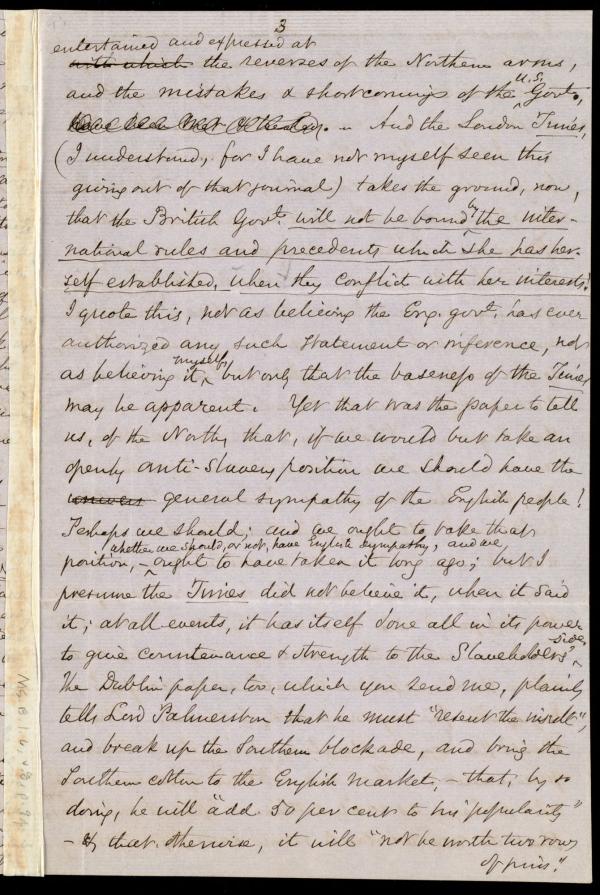 3
entertained and expressed at
with which the reverses of the Northern arms,
and the mistakes & shortcomings of the U.S. Govt.,
And the London Times,
(I understand, for I have not myself seen this
giving out of that journal) takes the ground, now,
that the British Govt. will not be bound by the inter-
national rules and precedents which she has her-
self established, when they conflict with her interests!
I quote this, not as believing the Eng. govt. has ever
authorized any such statement or inference, nor
as believing it myself, but only that the baseness of the Times
may be apparent. Yet that was the paper to tell
us, of the North, that, if we would but take an
openly anti-slavery position we should have the
general sympathy of the English people!
Perhaps we should; and we ought to take that
whether we should, or not, have English sympathy, and we
position, – ought to have taken it long ago; but I
presume the Times did not believe it, when it said
it; at all events, it has itself done all in its power
to give countenance & strength to the Slaveholders' side.
The Dublin paper, too, which you send me, plainly
tells Lord Palmerston that he must "resent the insult",
and break up the Southern blockade, and bring the
Southern cotton to the English market, – that, by so
doing, he will "add 50 per cent to his popularity"
– & that otherwise, it will "not be worth two rows
of pins."